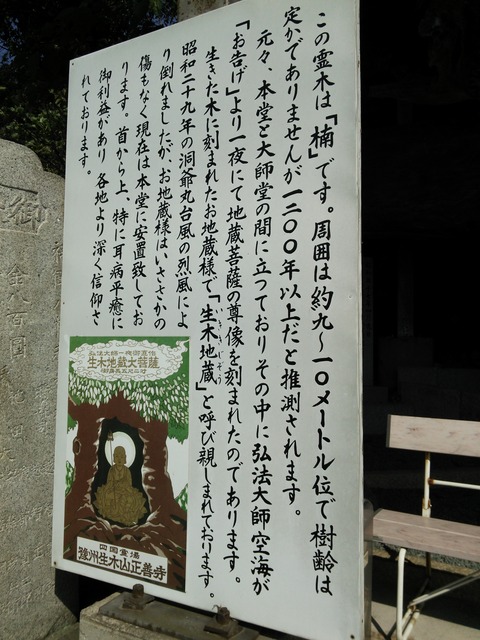 この霊木は「楠」です。周囲は約九～一〇メートル位で樹齢は
定かでありませんが一二〇〇年以上だと推測されます。
元々、本堂と大師堂の間に立っておりその中に弘法大師空海が
「お告げ」より一夜にて地蔵菩薩の尊像を刻まれたのであります。
生きた木に刻まれたお地蔵様で「生木地蔵」と呼び親しまれております。
いききじぞう
昭和二十九年の洞爺丸台風の烈風によ
り倒れましたが、お地蔵様はいささかの
傷もなく現在は本堂に安置致してお
ります。首から上、特に耳病平癒に
御利益があり各地より深く信仰さ
れております。
弘法大師一夜御直作
生木地蔵大菩薩
四国霊場
豫州生木山正善寺
御
金八百圓